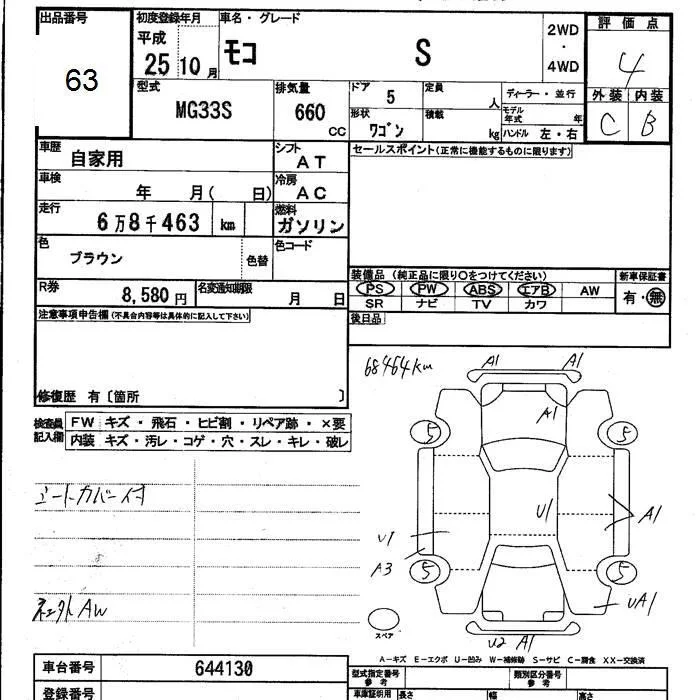 出品番号
63
初度登録年月
平成
25 10 月
車名・グレード
モコ S
2WD
・
4WD
評価点
4
外装 内装
C B
型式
MG33S
排気量
660
CC
ドア 5
形状 ワゴン
定員 人
積載 kg
ディーラー・並行
モデル年式 年
ハンドル 左・右
車歴
自家用
シフト
AT
セールスポイント(正常に機能するものに限ります)
車検
年 月( 日)
冷房
AC
走行
6万8千463 km
燃料
ガソリン
色
ブラウン
色替
色コード
R券
8,580円
名変通知期限
月 日
装備品 (純正品に限り○をつけてください)
PS PW ABS エアB AW
SR ナビ TV カワ
新車保証書
有・無
後日品
注意事項申告欄(不具合内容等は具体的に記入して下さい)
修復歴 有〔箇所 〕
検査員
記入欄
FW キズ・飛石・ヒビ割・リペア跡・×要
内装 キズ・汚レ・コゲ・穴・スレ・キレ・破レ
68464km
A1 A1
A1
5 5
U1
A1
U1
A3
5 5
UA1
U2 A1
スペア
シートカバー付
ネジ外AW
A-キズ E-エクボ U-凹み W-補修跡 S-サビ C-腐食 XX-交換済
車台番号
644130
登録番号
型式指定番号
参考
類別区分番号
参考
車庫証明用
長さ 幅 高さ